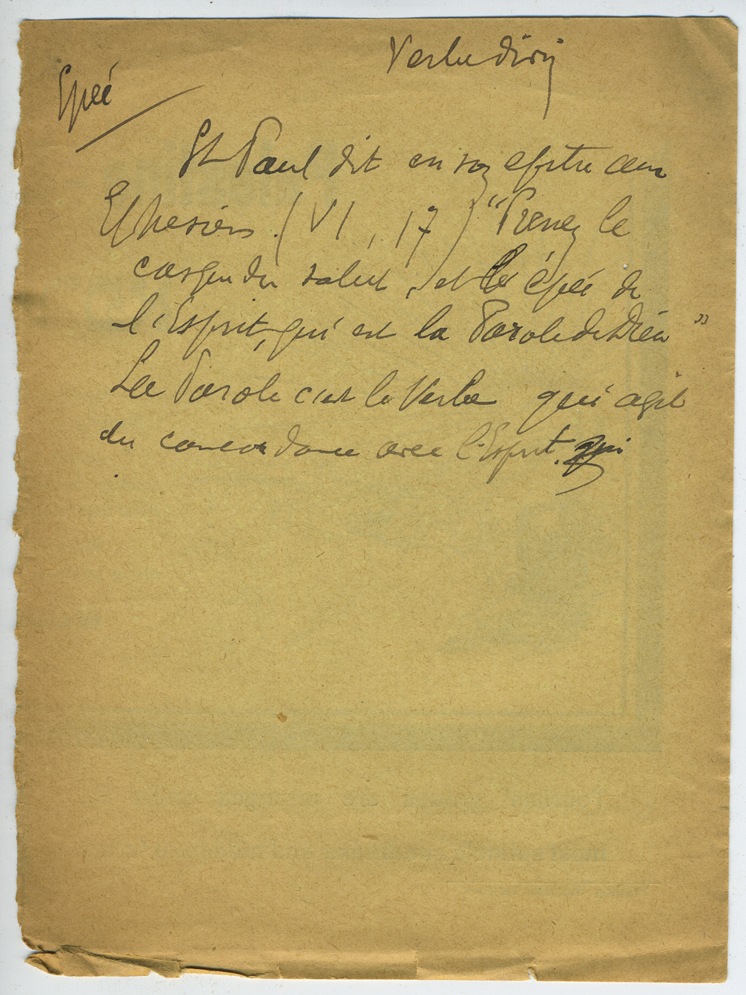 Verbe divin
Epée
St Paul dit en son epitre aux
Ephesiens (VI, 17) "Prenez le
casque du salut, et l'épée de
l'Esprit, qui est la Parole de Dieu"
La Parole c'est le Verbe qui agit
en concordance avec l'Esprit. qui